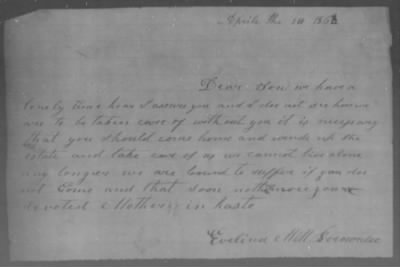 Aprile the 10 186
Dear Son we have a
lonely time hear I assure you and I doe not see how we
are to be taken care of without you it is nessary
that you should come home and winde up the
estate and take care of us we cannot live alone
any longer we are bound to suffer if you doe
not Come and that soon nothe more your
devoted Mother in haste
Evelind Mill